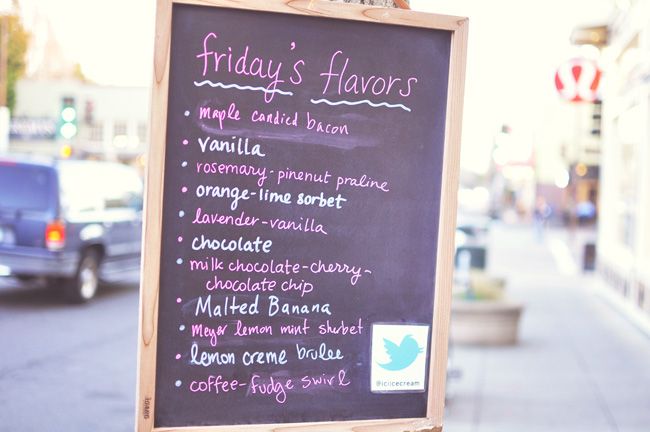 friday's flavors
• maple candied bacon
• vanilla
• rosemary-pinenut praline
• orange-lime sorbet
• lavender-vanilla
• chocolate
• milk chocolate-cherry-
chocolate chip
• Malted Banana
• Meyer lemon mint sherbet
• lemon creme brulee
• coffee-fudge swirl
@iciicecream